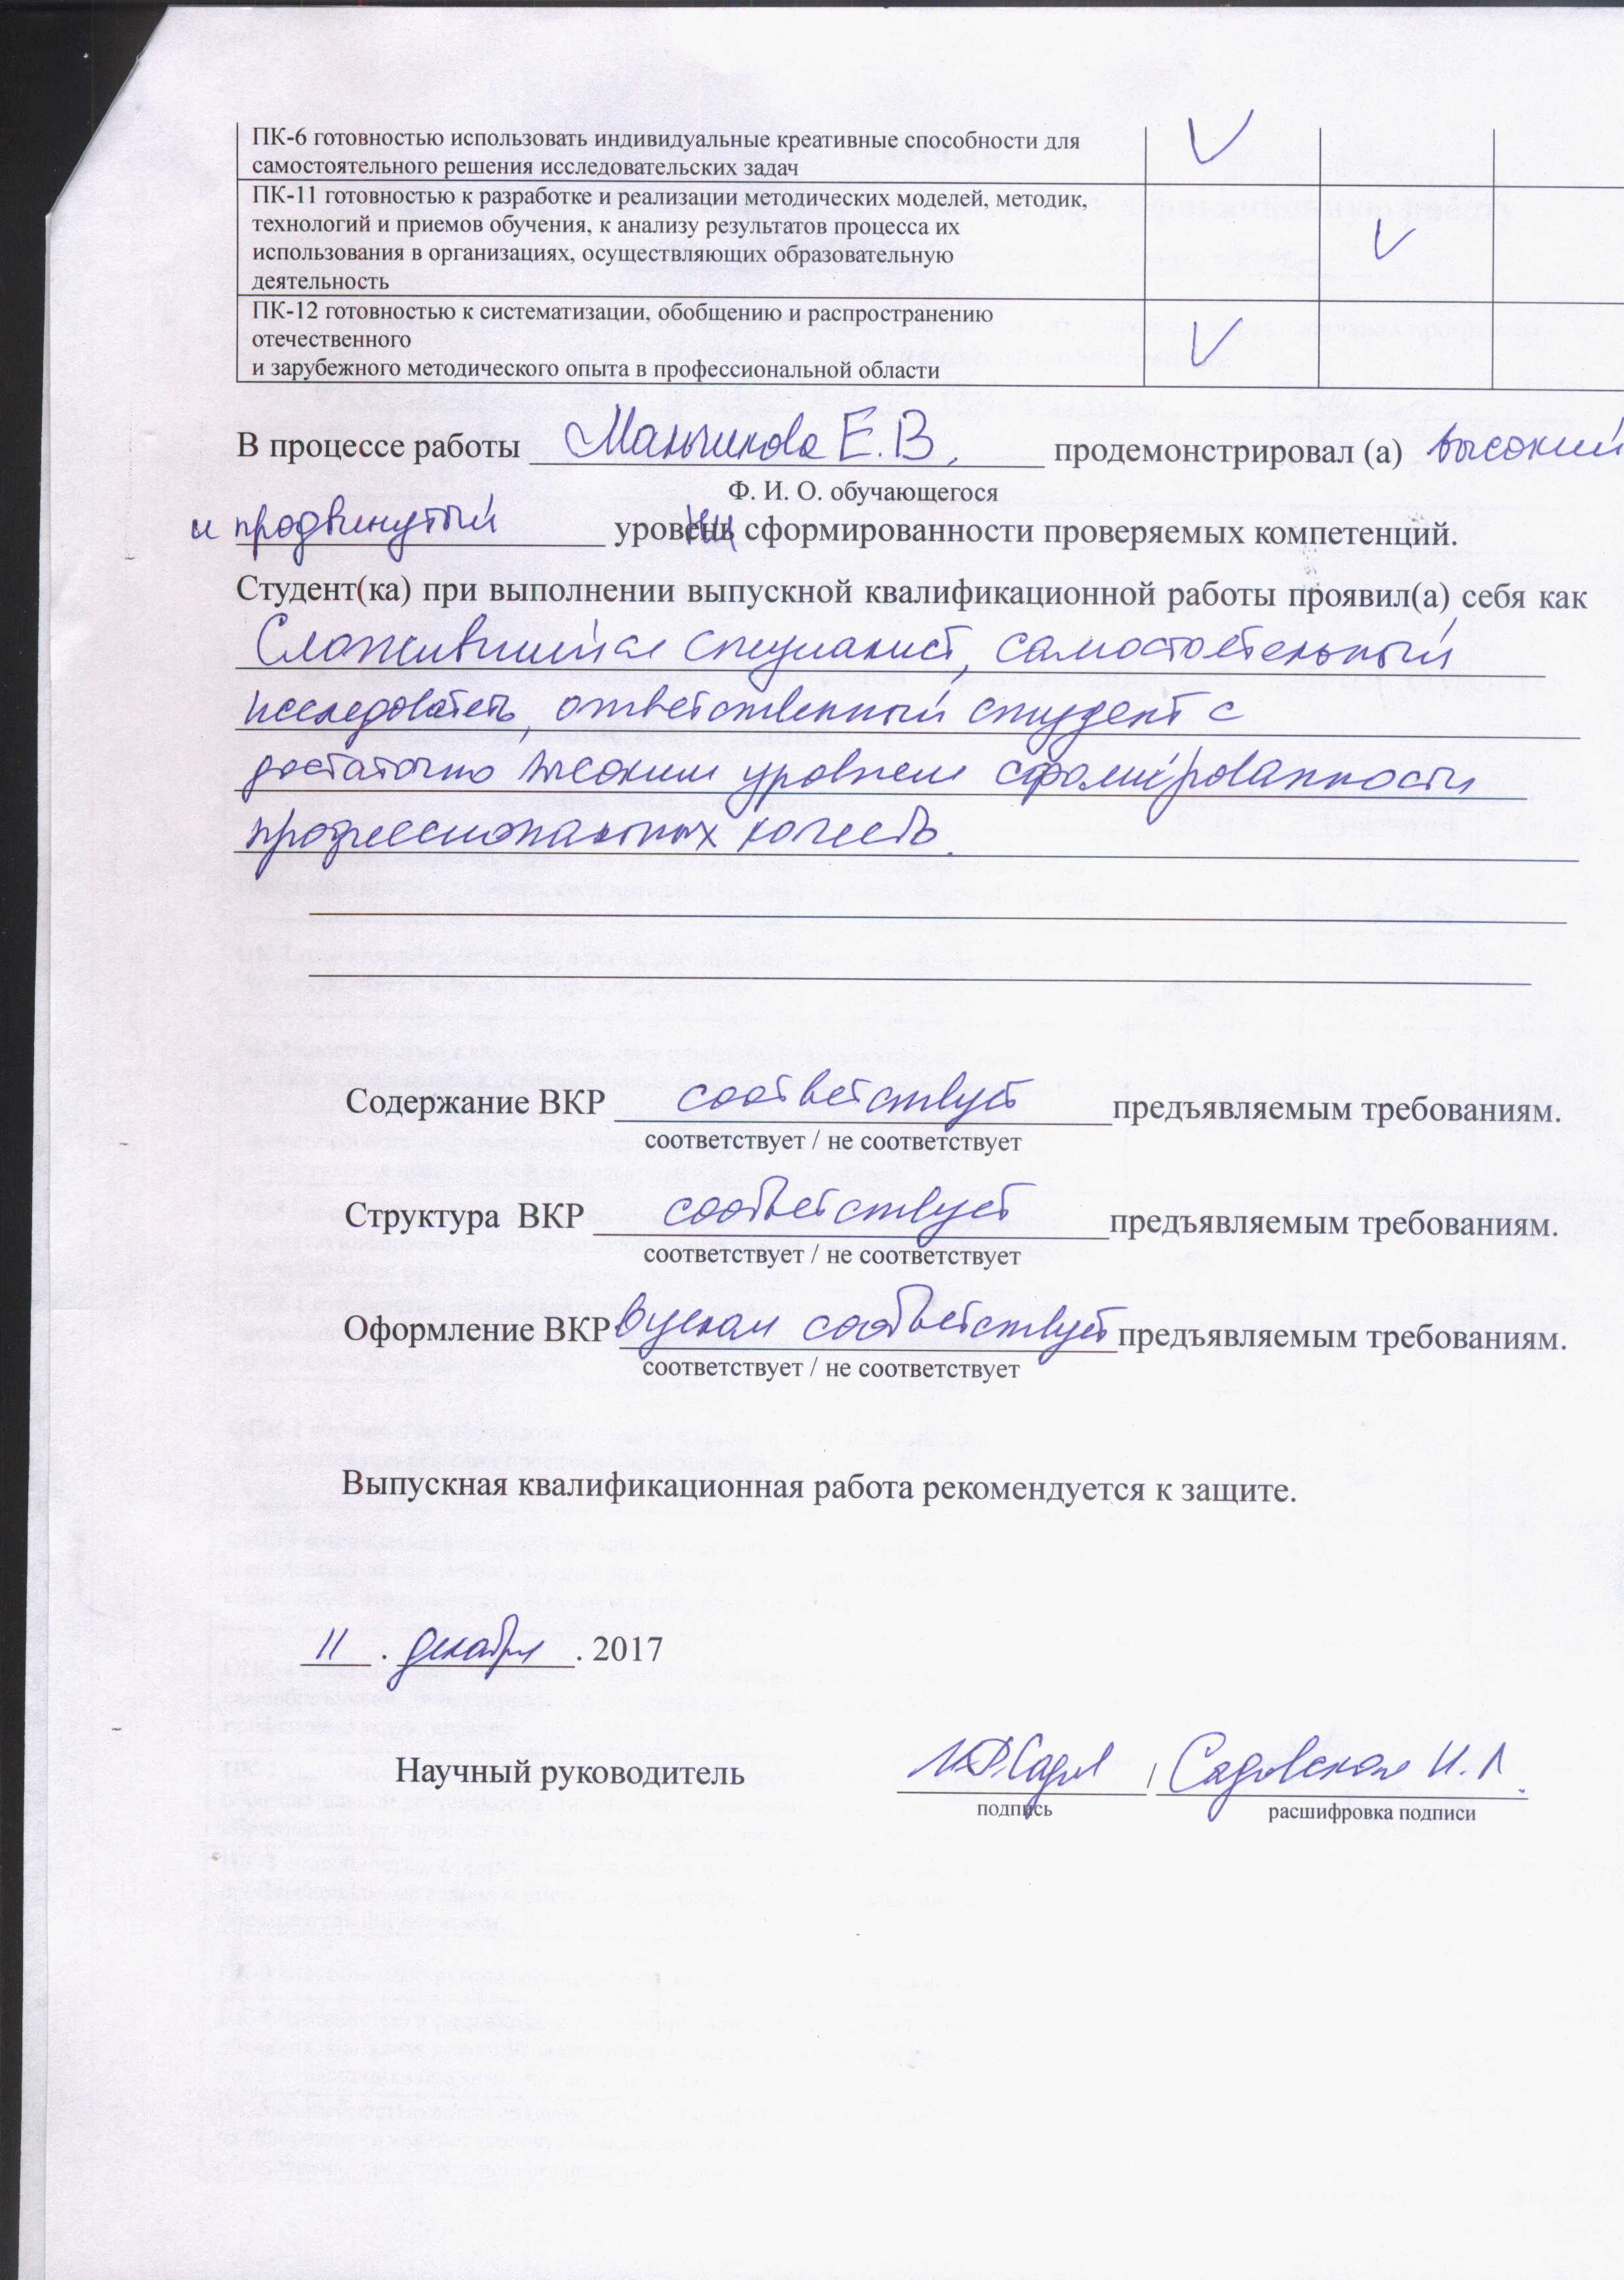 ПК-6 готовностью использовать индивидуальные креативные способности для
самостоятельного решения исследовательских задач
ПК-11 готовностью к разработке и реализации методических моделей, методик,
технологий и приемов обучения, к анализу результатов процесса их
использования в организациях, осуществляющих образовательную
деятельность
ПК-12 готовностью к систематизации, обобщению и распространению
отечественного
и зарубежного методического опыта в профессиональной области
В процессе работы Маньчикова Е.В. продемонстрировал (а) высокий
Ф. И. О. обучающегося
и продвинутый уровень сформированности проверяемых компетенций.
Студент(ка) при выполнении выпускной квалификационной работы проявил(а) себя как
Сложившийся специалист, самостоятельный
исследователь, ответственный студент с
достаточно высоким уровнем сформированности
профессиональных качеств.
Содержание ВКР соответствует предъявляемым требованиям.
соответствует / не соответствует
Структура ВКР соответствует предъявляемым требованиям.
соответствует / не соответствует
Оформление ВКР в целом соответствует предъявляемым требованиям.
соответствует / не соответствует
Выпускная квалификационная работа рекомендуется к защите.
11 . декабря . 2017
Научный руководитель / Садовская И.Л.
подпись расшифровка подписи